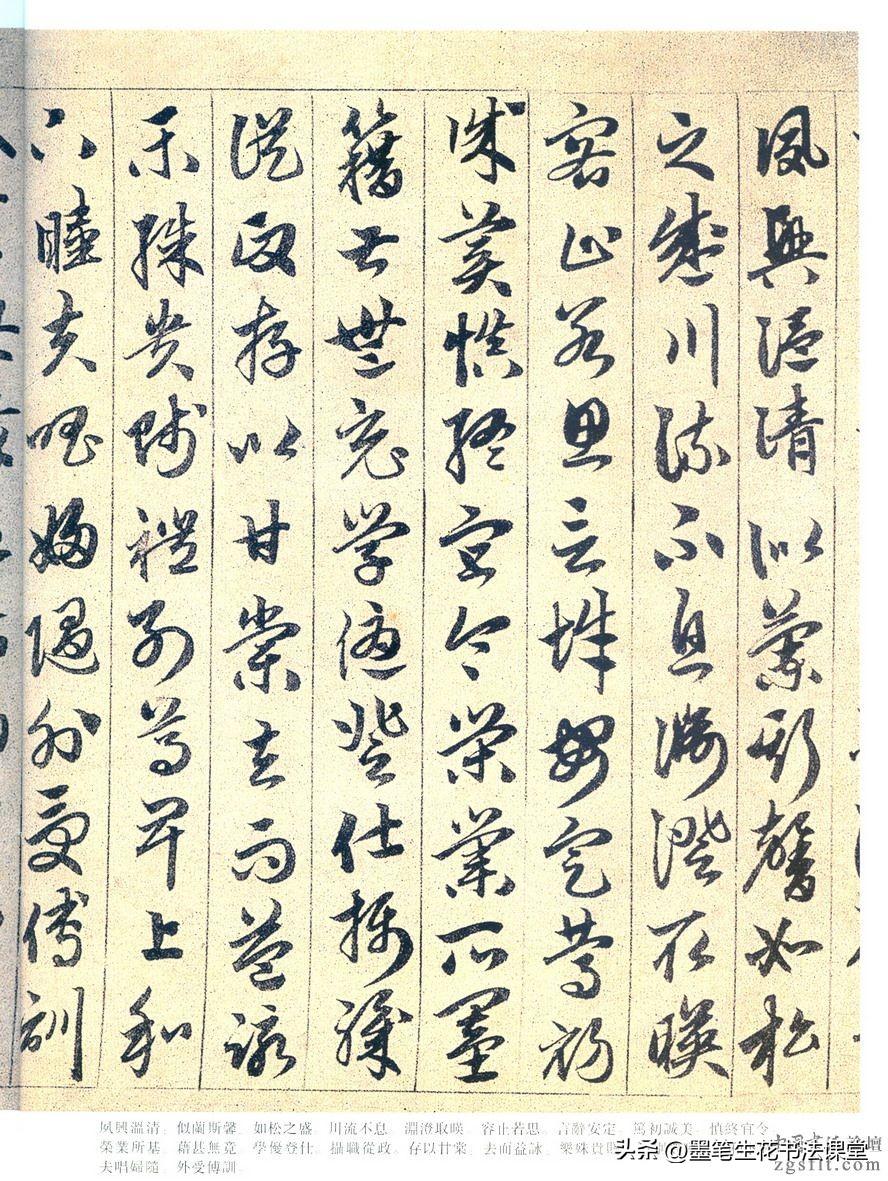 夙興温清似蘭斯馨如松
之盛川流不息淵澄取暎
容止若思言辭安定篤初
誠美慎終宜令榮業所基
籍甚無竟學優登仕攝職
從政存以甘棠去而益詠
樂殊貴賤禮別尊卑上和
下睦夫唱婦隨外受傅訓
夙興溫清 似蘭斯馨 如松之盛 川流不息 淵澄取暎 容止若思 言辭安定 篤初誠美 慎終宜令
榮業所基 藉甚無竟 學優登仕 攝職從政 存以甘棠 去而益詠 樂殊貴
夫唱婦隨 外受傅訓
头条 @墨笔生花书法课堂
zgsfit.com